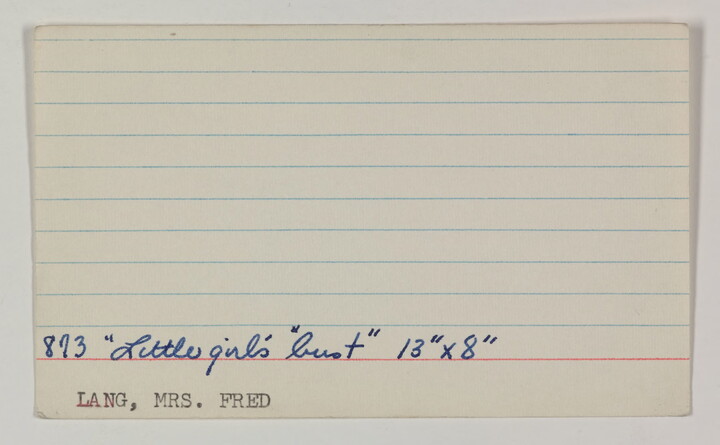 873 "Little girl's "bust" 13"x8"
LANG, MRS. FRED